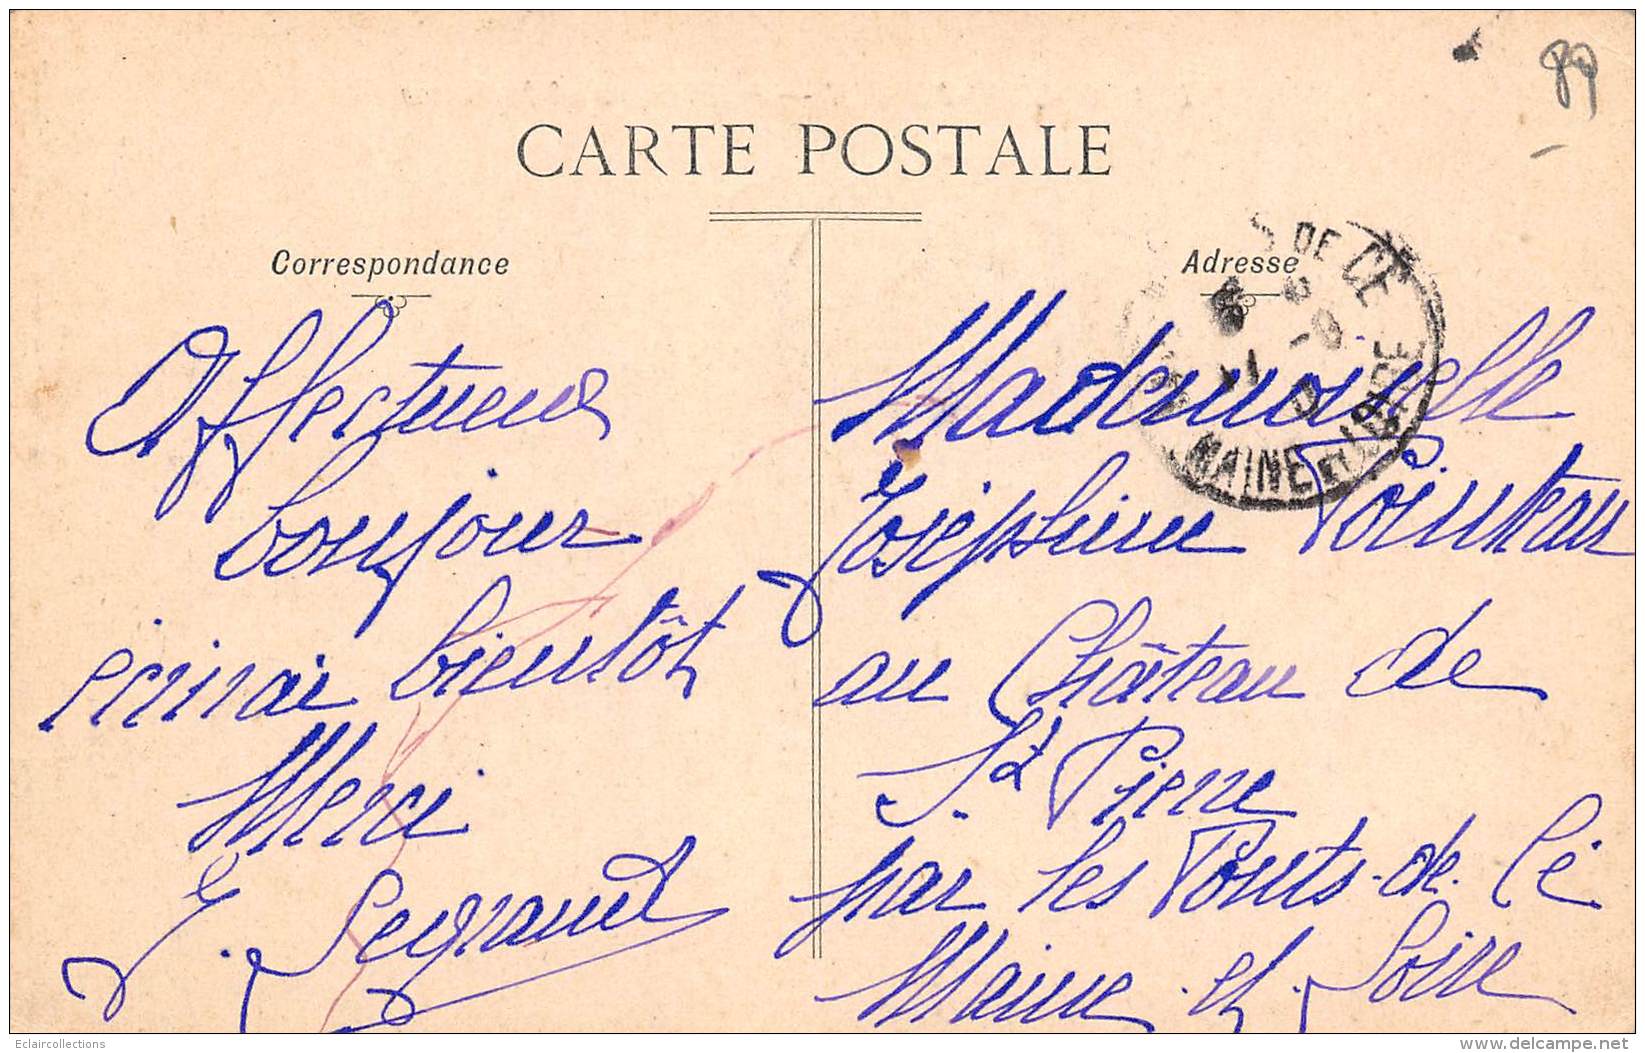 89
CARTE POSTALE
Correspondance
Affectueux
bonjour
écrirai bientôt
Merci
J. Legrand
Adresse
Mademoiselle
Joséphine Pointeau
au Château de
St Pierre
par les Ponts-de-Cé
Maine-et-Loire
S DE CÉ
MAINE ET LOIRE
Eclaircollections
www.delcampe.net